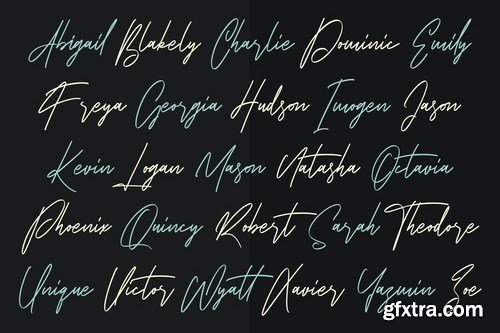 Abigail Blakely Charlie Dominic Emily
Freya Georgia Hudson Imogen Jason
Kevin Logan Mason Natasha Octavia
Phoenix Quincy Robert Sarah Theodore
Unique Victor Wyatt Xavier Yazmin Zoe
gfxtra.com